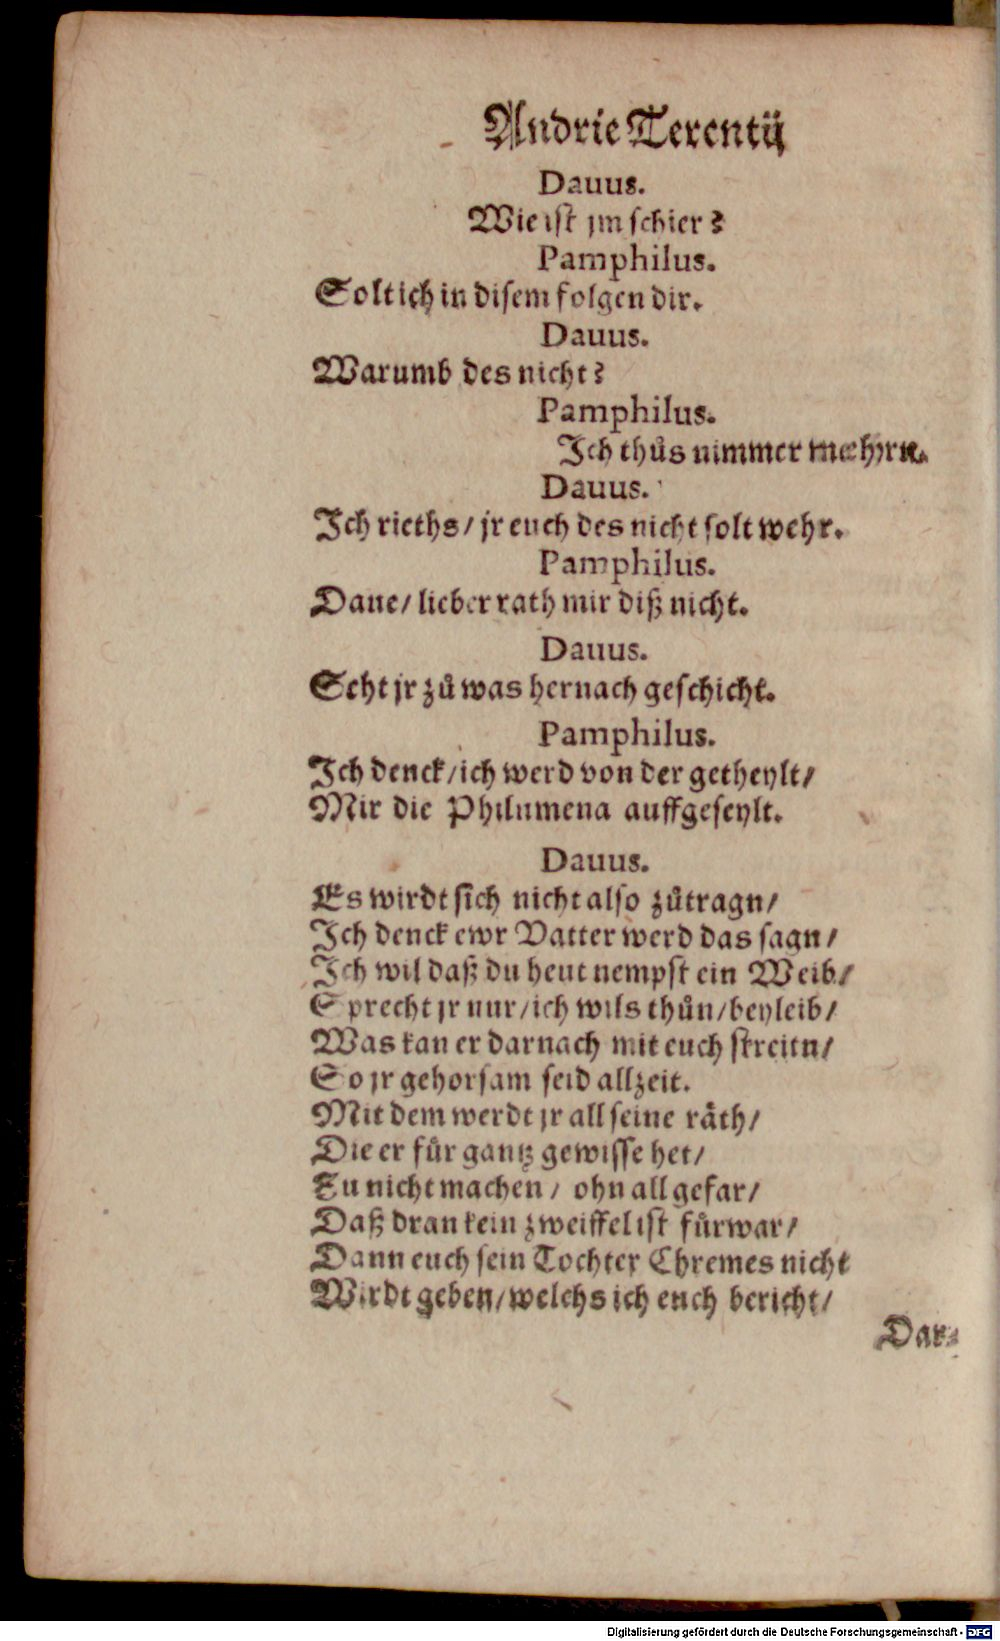 Andrie Terentij
Dauus.
Wie ist jm schier?
Pamphilus.
Solt ich in disem folgen dir.
Dauus.
Warumb des nicht?
Pamphilus.
Ich thůs nimmer
Dauus.
Ich rieths/ jr euch des nicht solt wehr.
Pamphilus.
Daue/ lieber rath mir diß nicht.
Dauus.
Seht jr zů was hernach geschicht.
Pamphilus.
Ich denck/ ich werd von der getheylt/
Mir die Philumena auffgeseylt.
Dauus.
Es wirdt sich nicht also zůtragn/
Ich denck ewr Vatter werd das sagn/
Ich wil daß du heut nempst ein Weib/
Sprecht jr nur/ ich wils thůn/ beyleib/
Was kan er darnach mit euch streitn/
So jr gehorsam seid allzeit.
Mit dem werdt jr all seine räth/
Die er für gantz gewisse het/
Zu nicht machen/ ohn all gefar/
Daß dran kein zweiffel ist fürwar/
Dann euch sein Tochter Chremes nicht
Wirdt geben/ welchs ich euch bericht/
Dar⸗
Digitalisierung gefördert durch die Deutsche Forschungsgemeinschaft - DFG